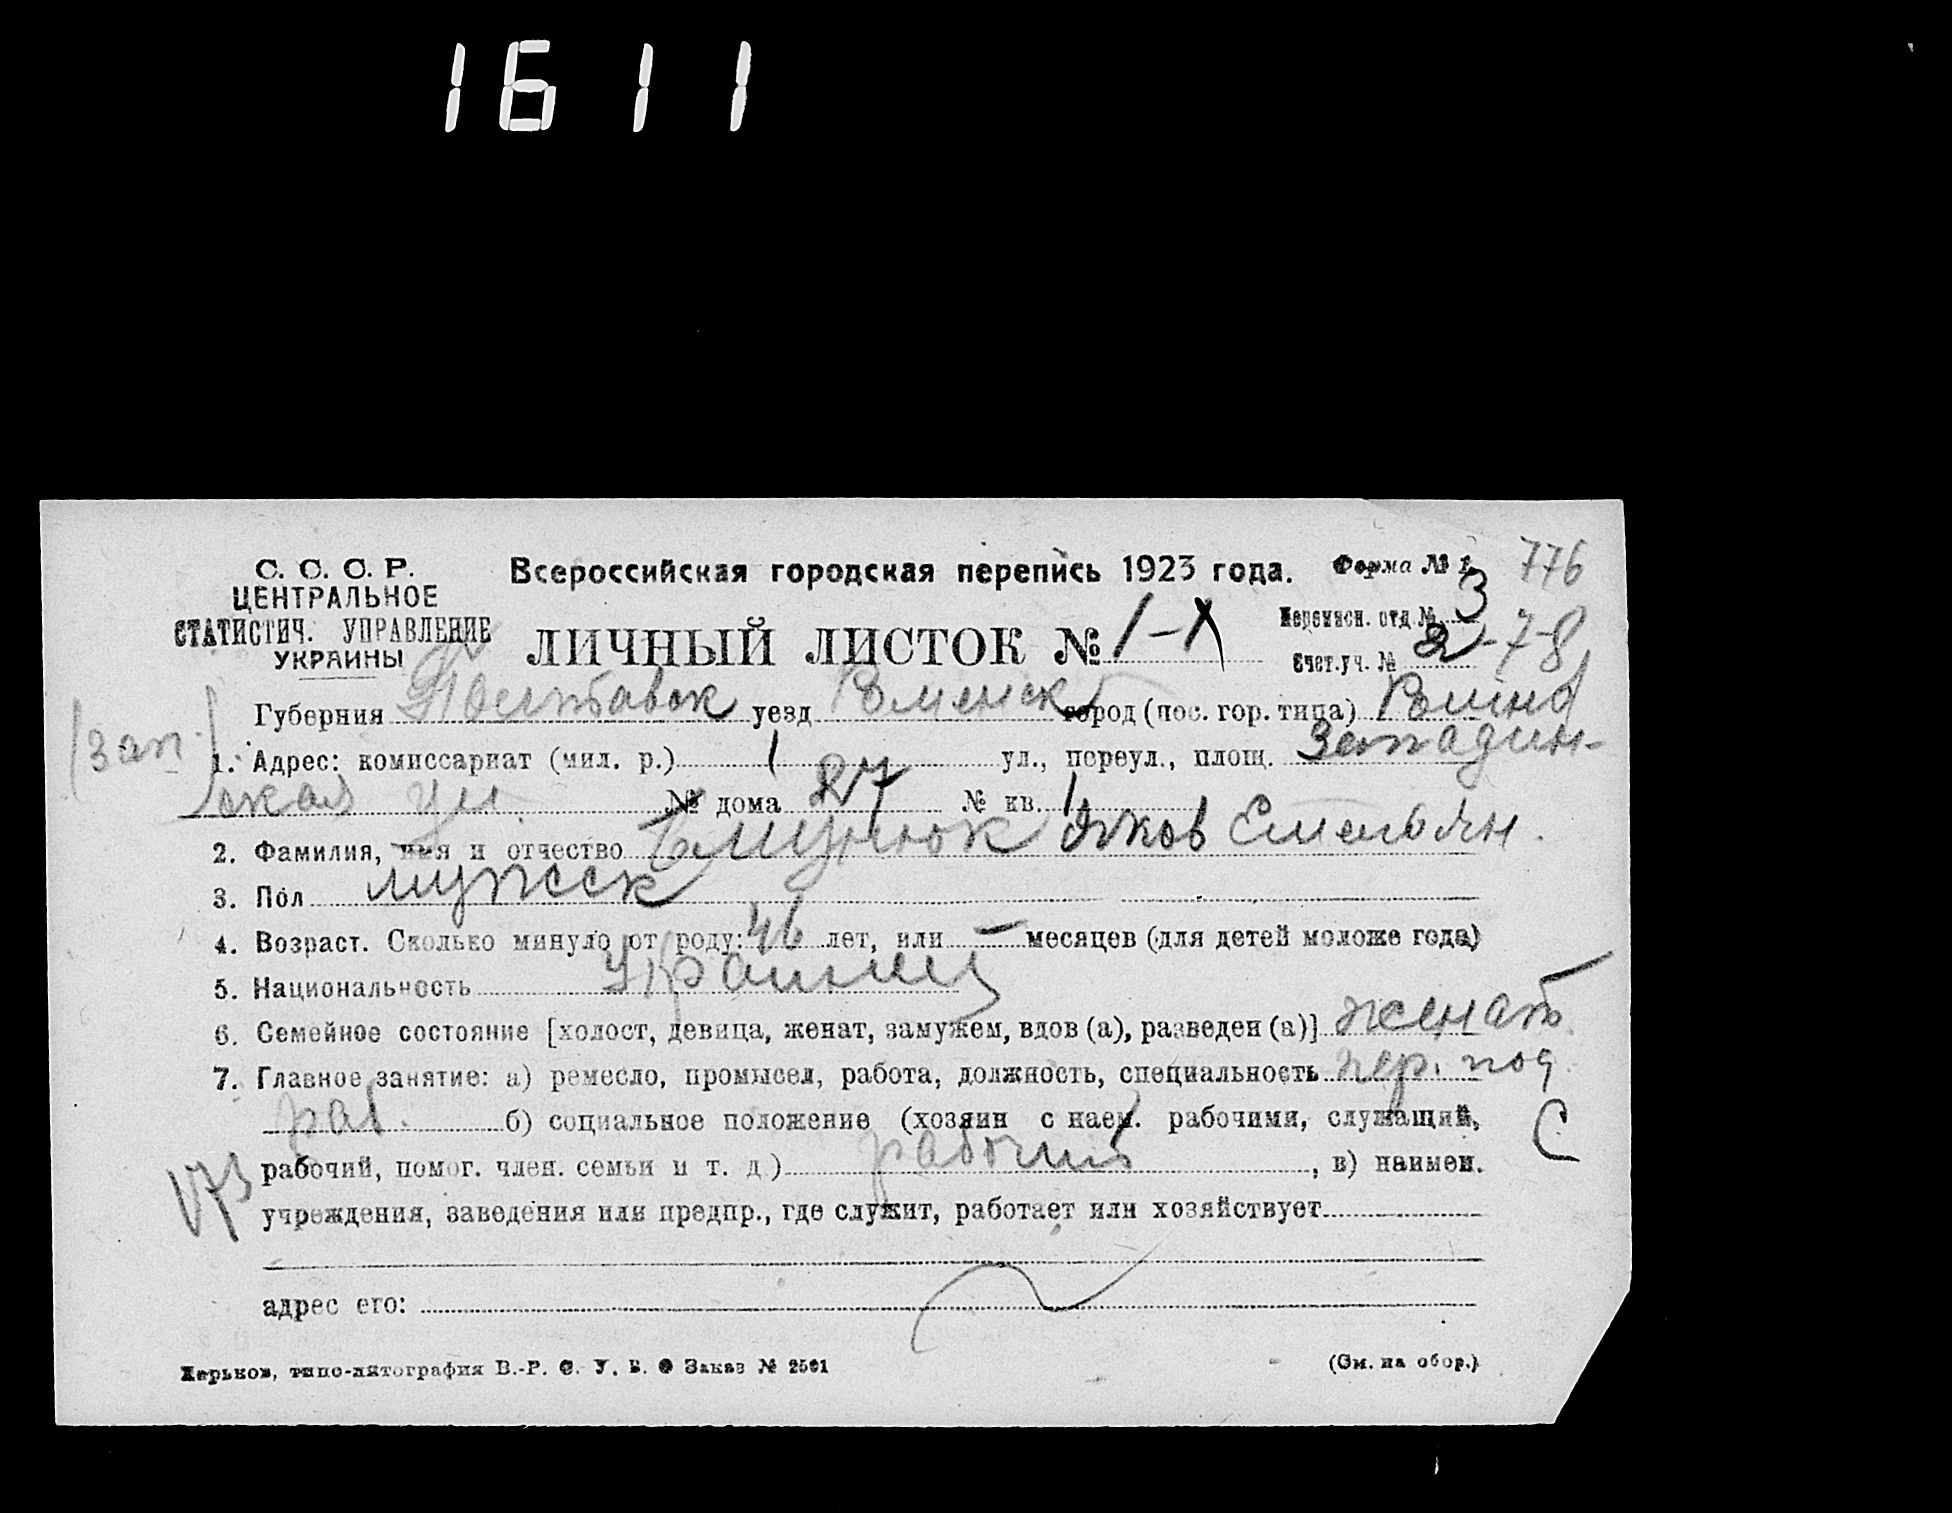 1611
С. С. С. Р.
ЦЕНТРАЛЬНОЕ
СТАТИСТИЧ. УПРАВЛЕНИЕ
УКРАИНЫ
Всероссийская городская перепись 1923 года.
Форма № 1. 776
ЛИЧНЫЙ ЛИСТОК № 1-
Переписн. отд. № 3
Счет. уч. № 2 -7-8
Губерния Полтавск уезд Роменск город (пос. гор. типа) Ромны
(Зап.) 1. Адрес: комиссариат (мил. р.) 1 ул., переул., площ. Западин-
ская ул № дома 27 № кв. 1
2. Фамилия, имя и отчество Яков Емельян.
3. Пол мужск
4. Возраст. Сколько минуло от роду: 46 лет, или — месяцев (для детей моложе года)
5. Национальность Украинец
6. Семейное состояние [холост, девица, женат, замужем, вдов (а), разведен (а)] женат
7. Главное занятие: а) ремесло, промысел, работа, должность, специальность чер. под
раб. б) социальное положение (хозяин с наем. рабочими, служащий, С
173 рабочий, помог. член. семьи и т. д.) рабочий , в) наимен.
учреждения, заведения или предпр., где служит, работает или хозяйствует
адрес его:
Харьков, типо-литография В.-Р. С. У. В. О Заказ № 2501
(См. на обор.)